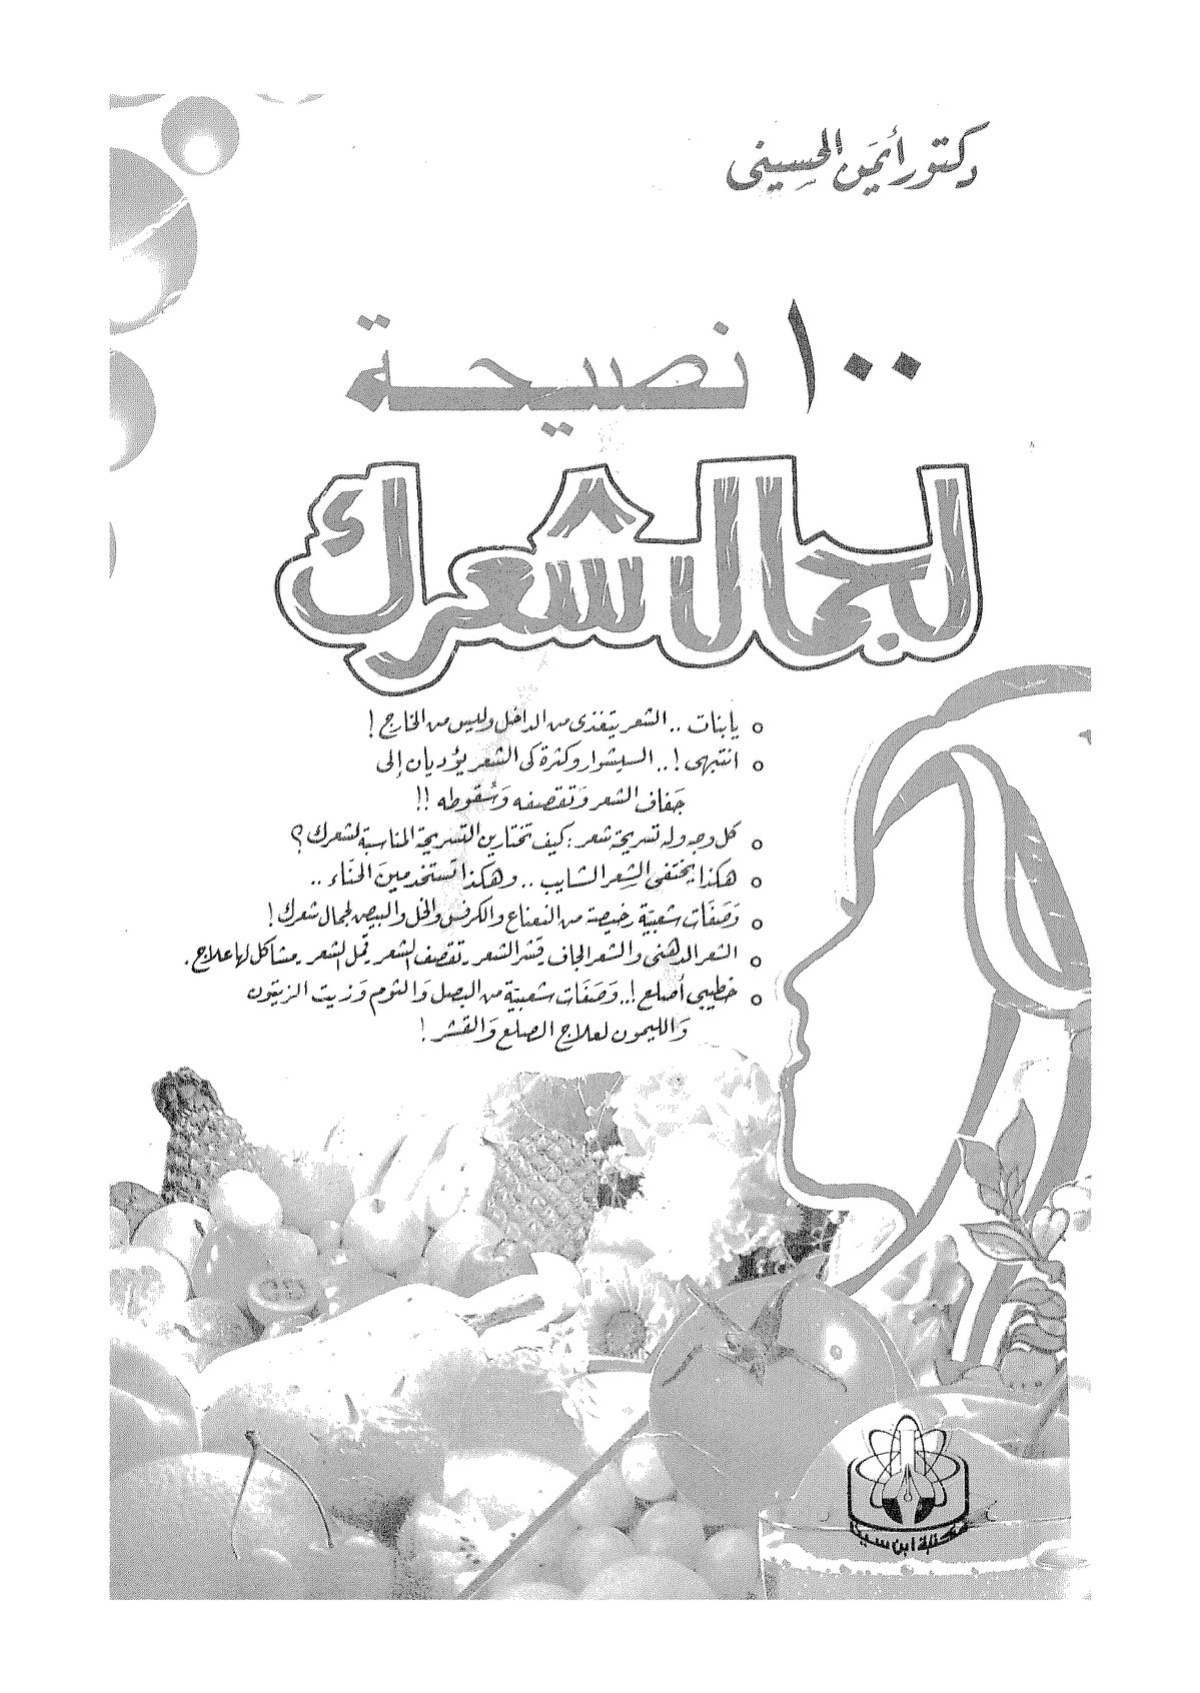 دكتور أيمن الحسيني
١٠٠ نصيحة
لجمال شعرك
o يابنات .. الشعر يتغذى من الداخل وليس من الخارج !
o انتبهى !.. السيشوار وكثرة كى الشعر يؤديان إلى
جَفاف الشعر وَتقصفه وَسُقوطه !!
o كل وجه وله تسريحة شعر : كيف تختارين التسريحة المناسبة لشعرك ؟
o هكذا يختفى الشعر الشايب .. وهكذا تستخدمين الحناء ..
o وَصَفَات شعبيّة رخيصة من النعناع والكرفس والخل والبيض لجمال شعرك !
o الشعر الدهنى والشعر الجاف ـ قشر الشعر ـ تقصف الشعر ـ قمل الشعر ـ مشاكل لها علاج .
o خطيبى أصلع !.. وَصَفَات شعبيّة من البصل وَالثوم وَزيت الزيتون
وَالليمون لعلاج الصلع وَالقشر !
مكتبة ابن سينا